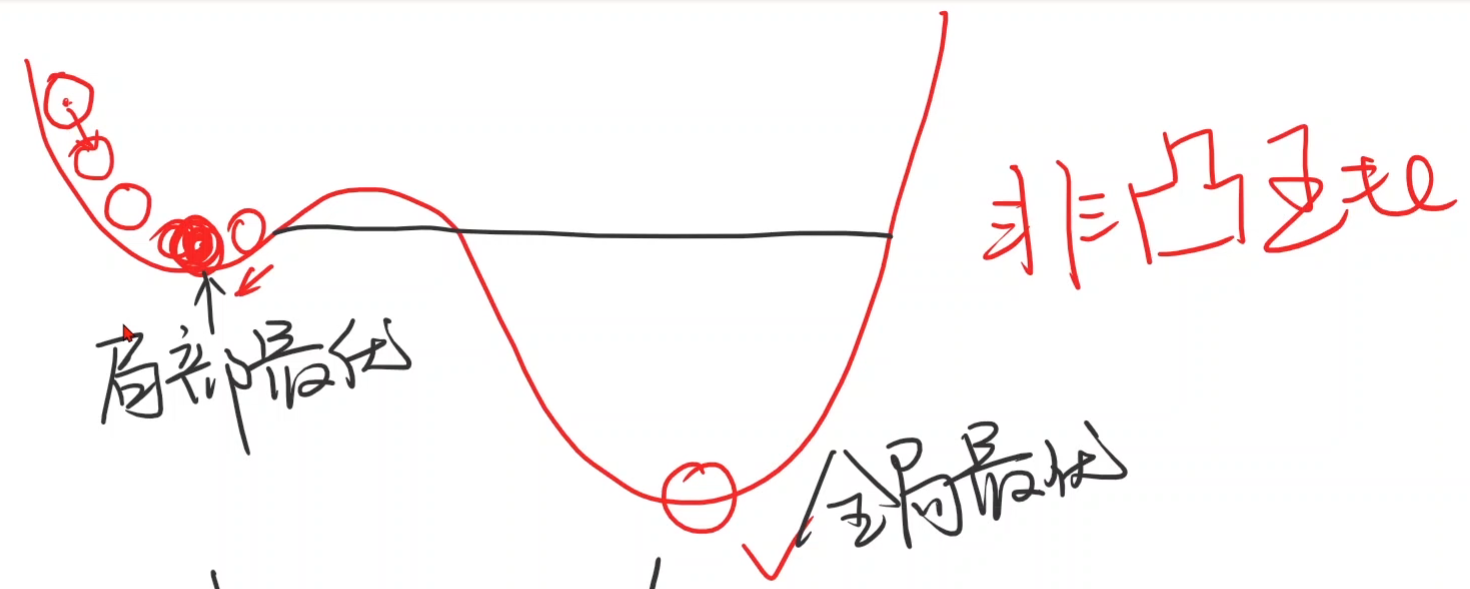 非凸王老
局部最优
全局最优